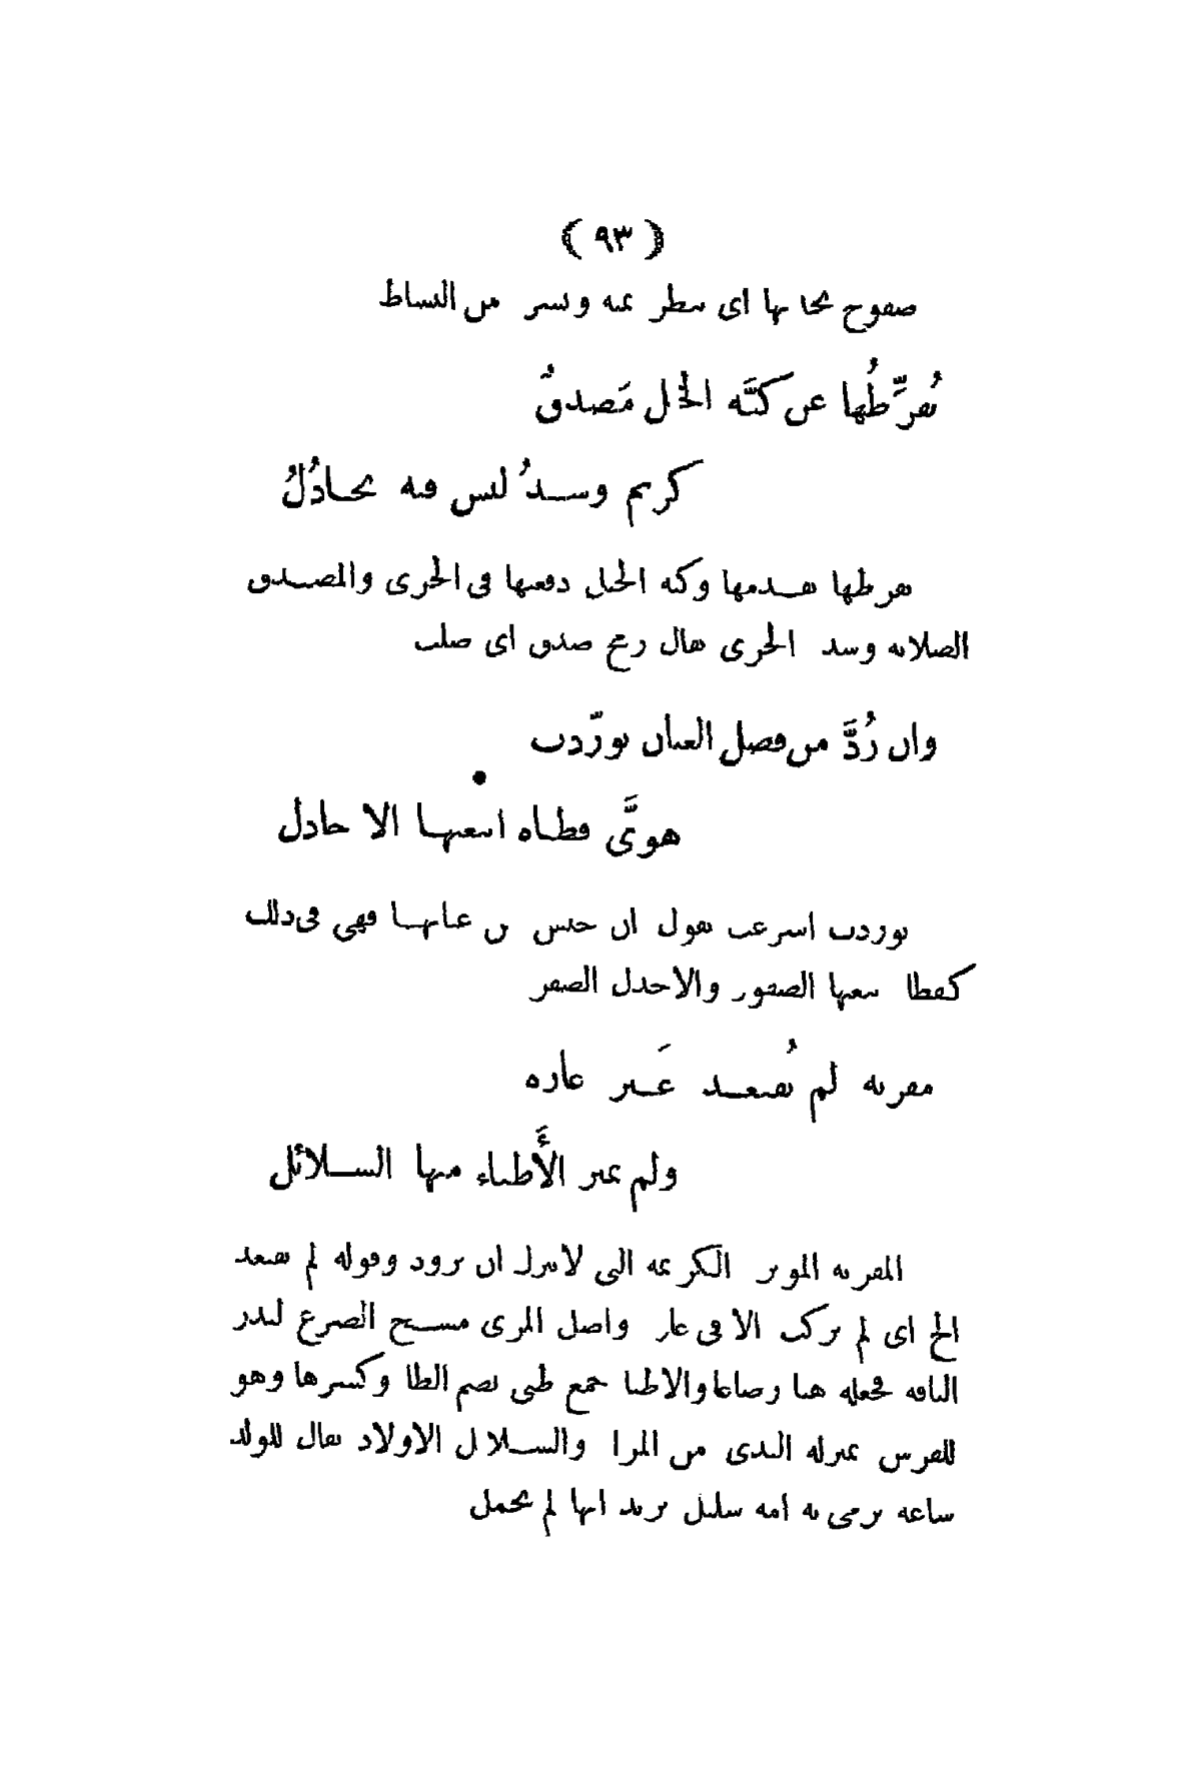 ( ٩٣ )
صفوح بخديها اى تنظر يمنة ويسرة من النشاط
يُفَرِّطُها عن كبَّة الخيل مَصدقٌ
كريم وشدٌ ليس فيه تخاذُلُ
يفرطها يقدمها وكبة الخيل دفعتها فى الجرى والمصدق
الصلابة وشد الجرى يقال رمح صدق اى صلب
وان رُدَّ من فضل العنان تورّدت
هوىَّ قطاة اتبعتها الاجادل
توردت اسرعت يقول ان حبس من عنانها فهى فى ذلك
كقطاة تتبعها الصقور والاجدل الصقر
مقربة لم تُقتعد غَير غارة
ولم تمتر الأَطباء منها السلائل
المقربة المؤثرة الكريمة التى لا تترك ان ترود وقوله لم تقتعد
الخ اى لم تركب الا فى غارة واصل المرى مسح الضرع لتدر
الناقة فجعله هنا رضاعا والاطباء جمع طبى بضم الطاء وكسرها وهو
للفرس بمنزلة الثدى من المرأة والسلائل الاولاد يقال للولد
ساعة ترمى به امه سليل يريد انها لم تحمل